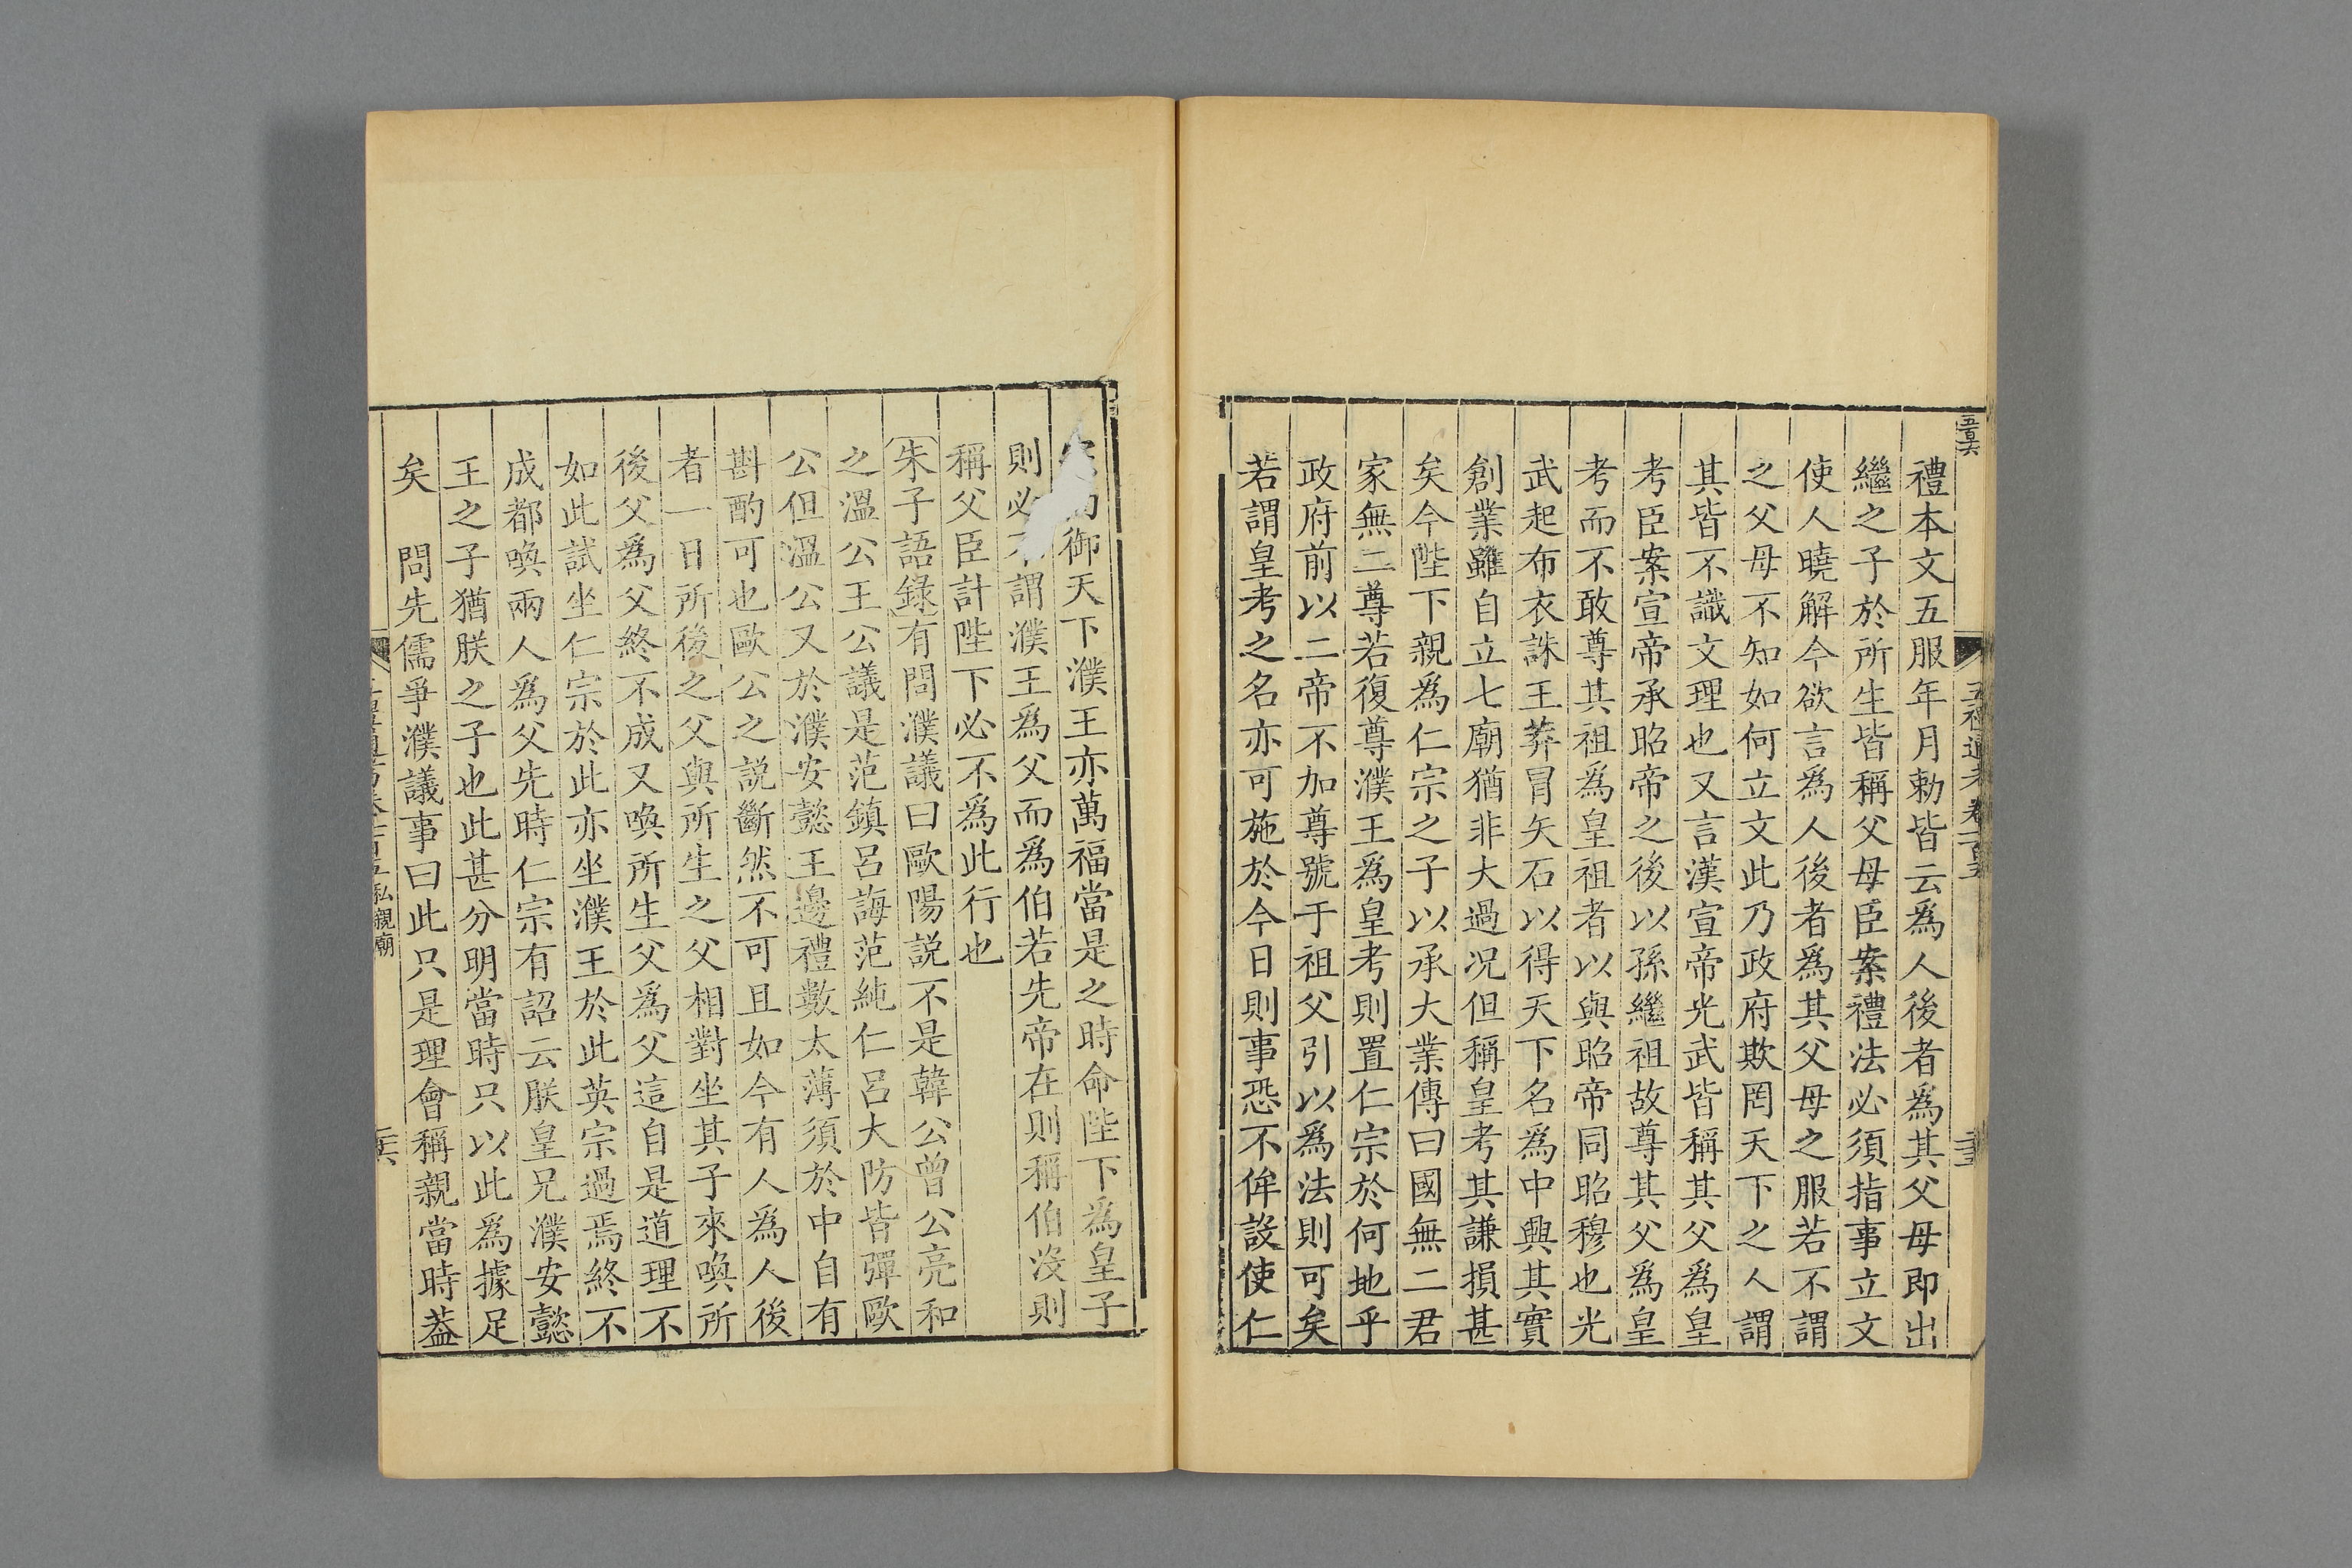 禮本文五服年月勅皆云爲人後者爲其父母即出
繼之子於所生皆稱父母臣案禮法必須指事立文
使人曉解今欲言爲人後者爲其父母之服若不謂
之父母不知如何立文此乃政府欺罔天下之人謂
其皆不識文理也又言漢宣帝光武皆稱其父爲皇
考臣案宣帝承昭帝之後以孫繼祖故尊其父爲皇
考而不敢尊其祖爲皇祖者以與昭帝同昭穆也光
武起布衣誅王莽冒矢石以得天下名爲中興其實
創業雖自立七廟猶非大過况但稱皇考其謙損甚
矣今陛下親爲仁宗之子以承大業傳曰國無二君
家無二尊若復尊濮王爲皇考則置仁宗於何地乎
政府前以二帝不加尊號于祖父引以爲法則可矣
若謂皇考之名亦可施於今日則事恐不侔設使仁
御天下濮王亦萬福當是之時命陛下爲皇子
則必謂濮王爲父而爲伯若先帝在則稱伯沒則
稱父臣計陛下必不爲此行也
朱子語錄有問濮議曰歐陽説不是韓公曾公亮和
之溫公王公議是范鎮呂誨范純仁呂大防皆彈歐
公但溫公又於濮安懿王邊禮數太薄須於中自有
斟酌可也歐公之説斷然不可且如今有人爲人後
者一日所後之父與所生之父相對坐其子來喚所
後父爲父終不成又喚所生父爲父這自是道理不
如此試坐仁宗於此亦坐濮王於此英宗過焉終不
成都喚兩人爲父先時仁宗有詔云朕皇兄濮安懿
王之子猶朕之子也此甚分明當時只以此爲據足
矣　問先儒爭濮議事曰此只是理會稱親當時葢
私親廟